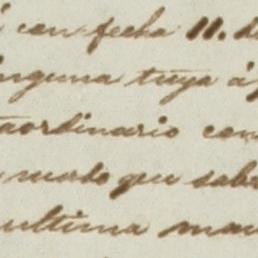 con fecha 11. d
inguna tuya á
aordinario con
modo que sab
ultima ma